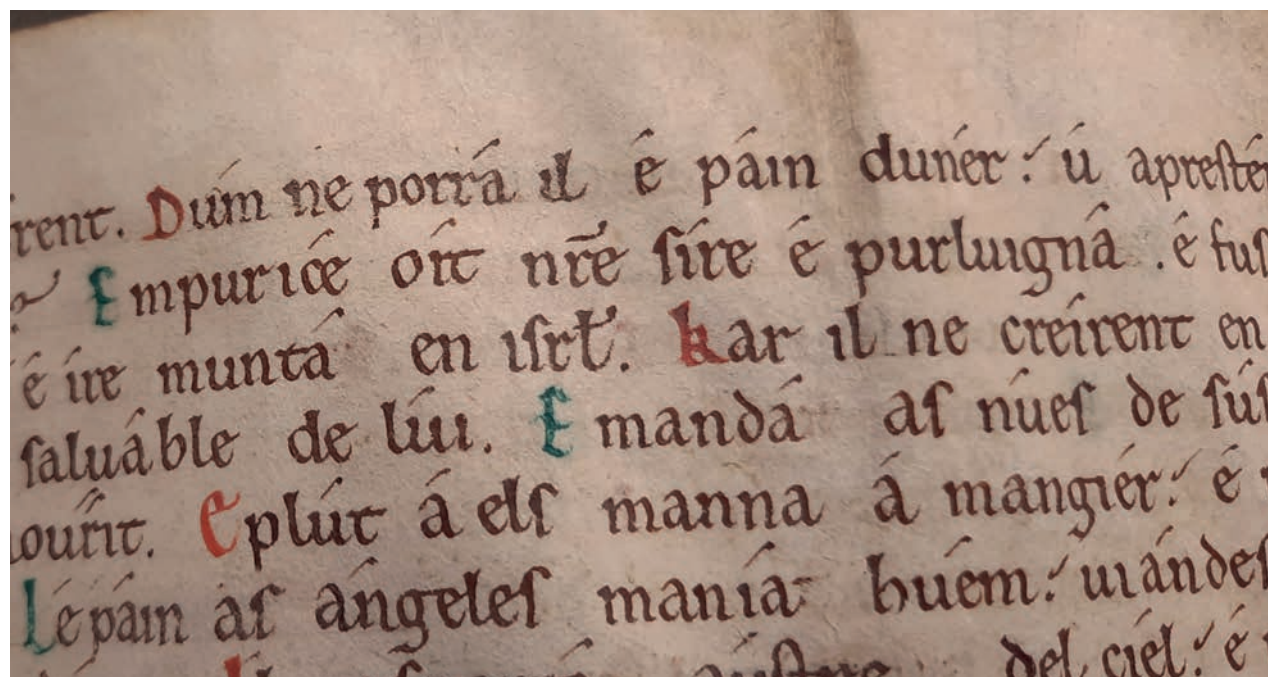 rent. Dúm ne porrá il é páin dunér:́ ú aprestér
Empur icé óit nr̄e síre é purluignâ . é fus
é ire muntá en isrł. kar il ne creirent en
saluáble de lúi. E mandá as núes de sús
ourit. E plút á els manna á mangiér:́ é
Lé páin as ángeles maniá búem:́ uiándes
del ciél:́ é